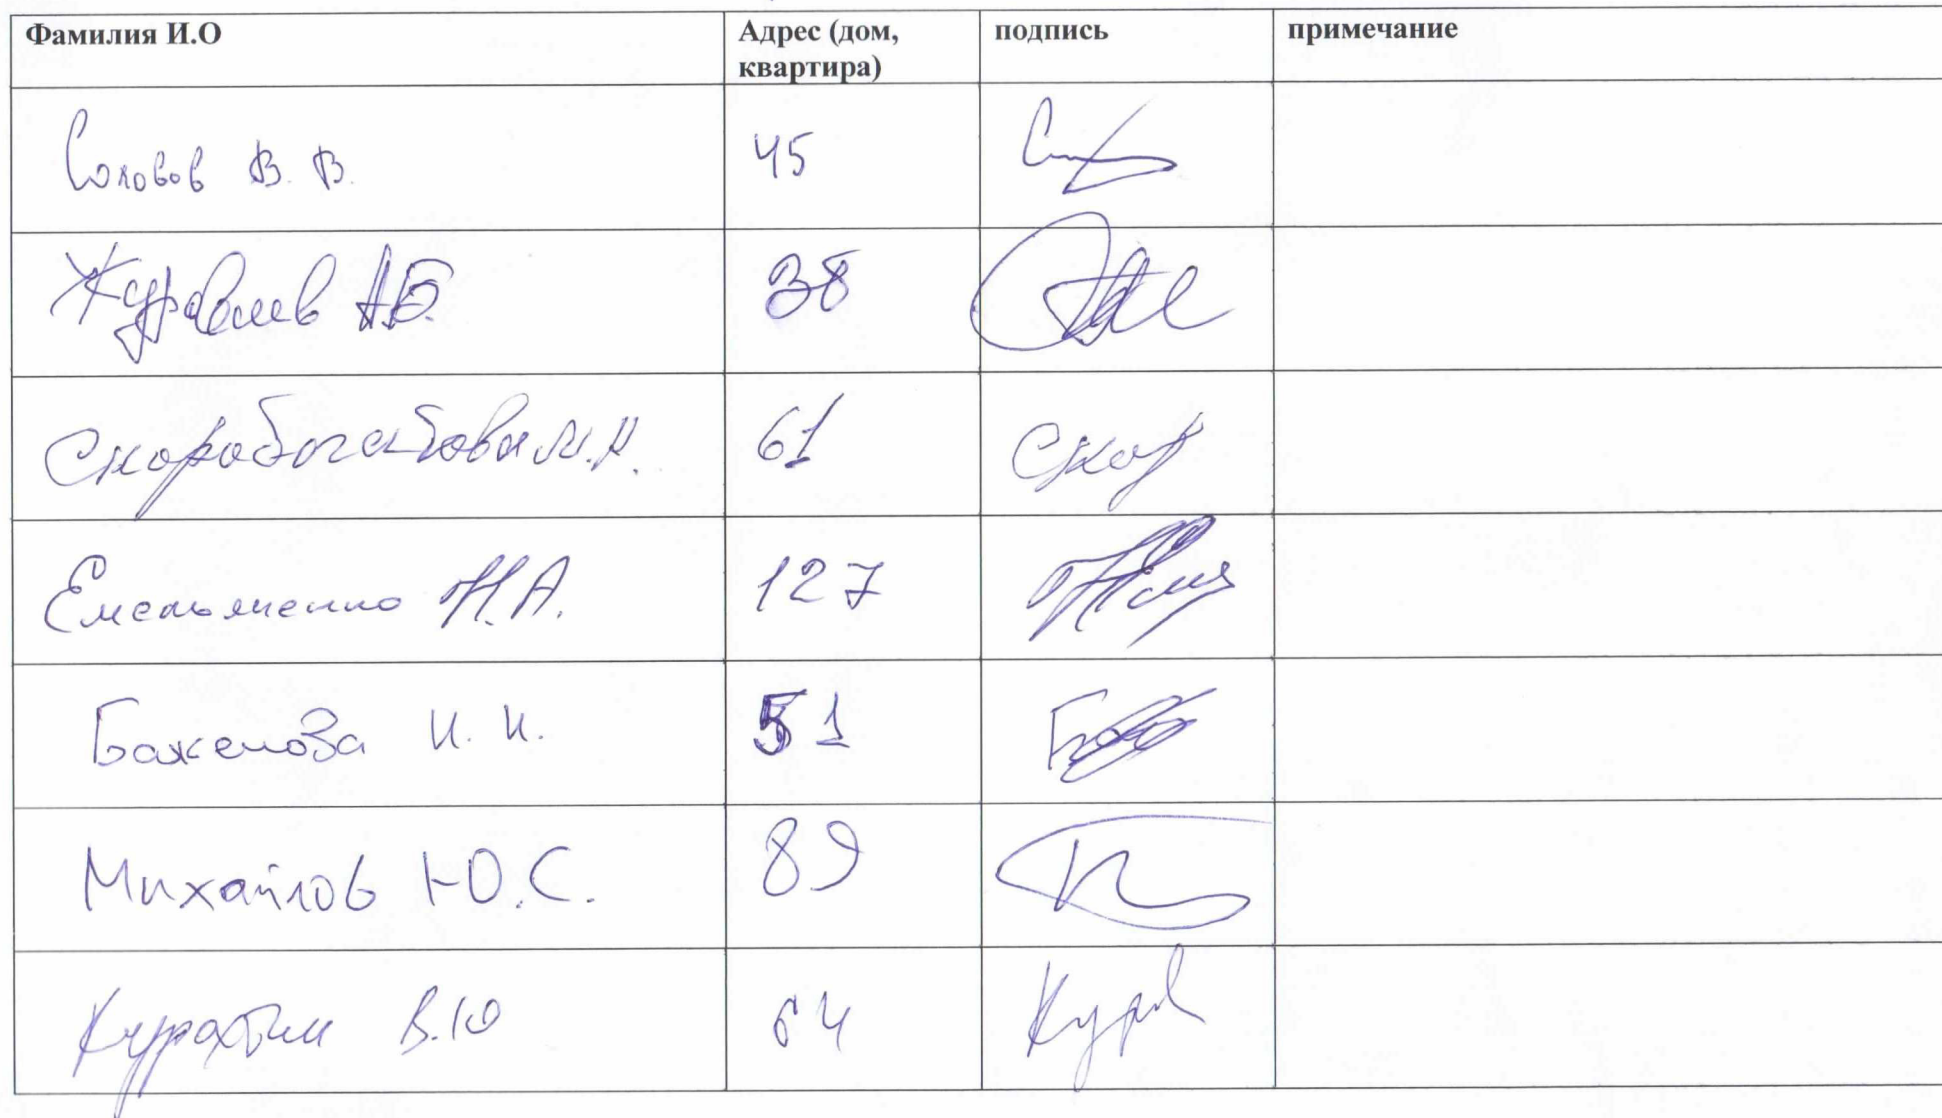 Фамилия И.О Адрес (дом, квартира) подпись примечание
Соловов В. В. 45
Журавлев А.Б. 38
Скоробогатова М.Н. 61 Скор
Емельяненко Н.А. 127
Баженова И. И. 51
Михайлов Ю.С. 89
В.Ю 64